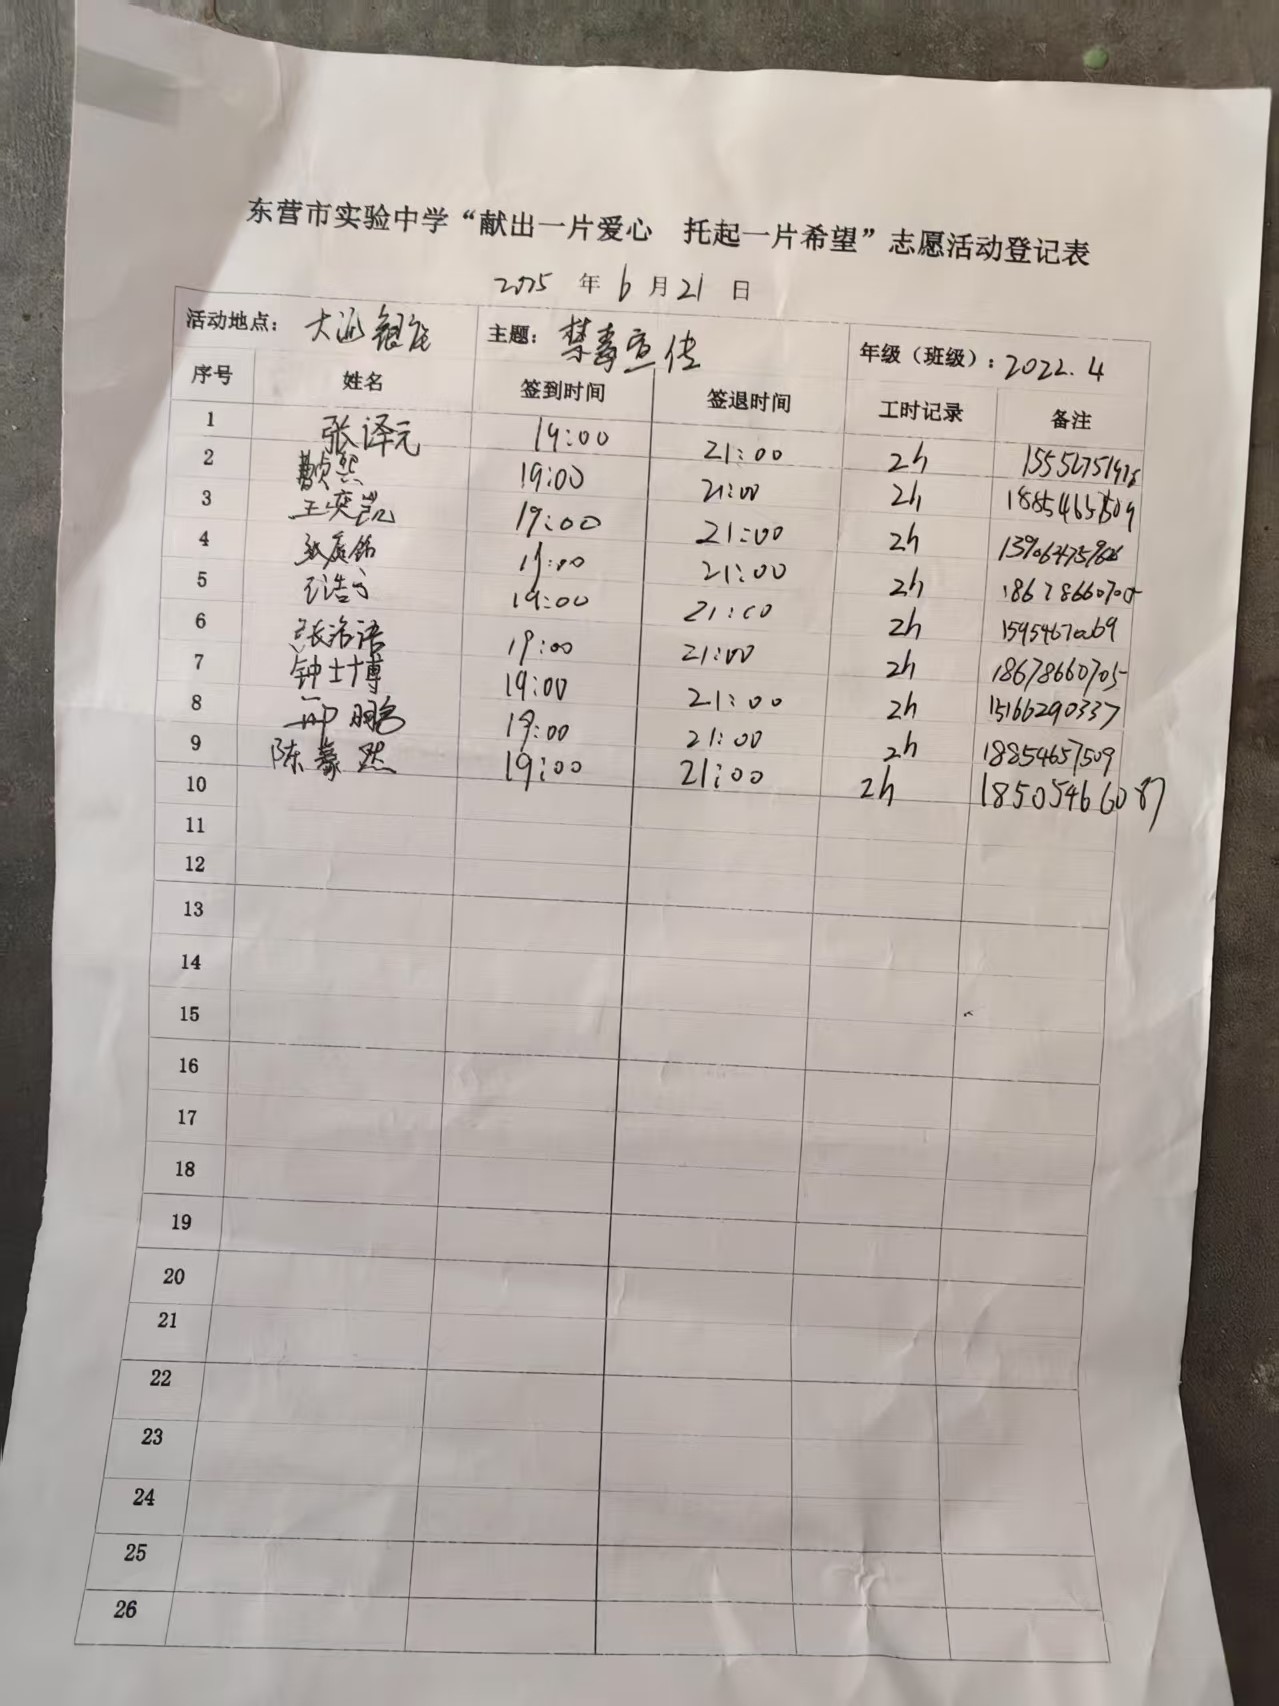 东营市实验中学“献出一片爱心 托起一片希望”志愿活动登记表
2025 年 6 月 21 日
活动地点： 主题：禁毒宣传 年级（班级）：2022.4
序号 姓名 签到时间 签退时间 工时记录 备注
1 张译元 19:00 21:00 2h
2 19:00 21:00 2h
3 王奕凯 19:00 21:00 2h
4 19:00 21:00 2h
5 19:00 21:00 2h
6 张洛语 19:00 21:00 2h 18678660705
7 钟士博 19:00 21:00 2h 15166290337
8 鹏 19:00 21:00 2h 18854657509
9 陈豪然 19:00 21:00 2h 18505466087
10
11
12
13
14
15
16
17
18
19
20
21
22
23
24
25
26